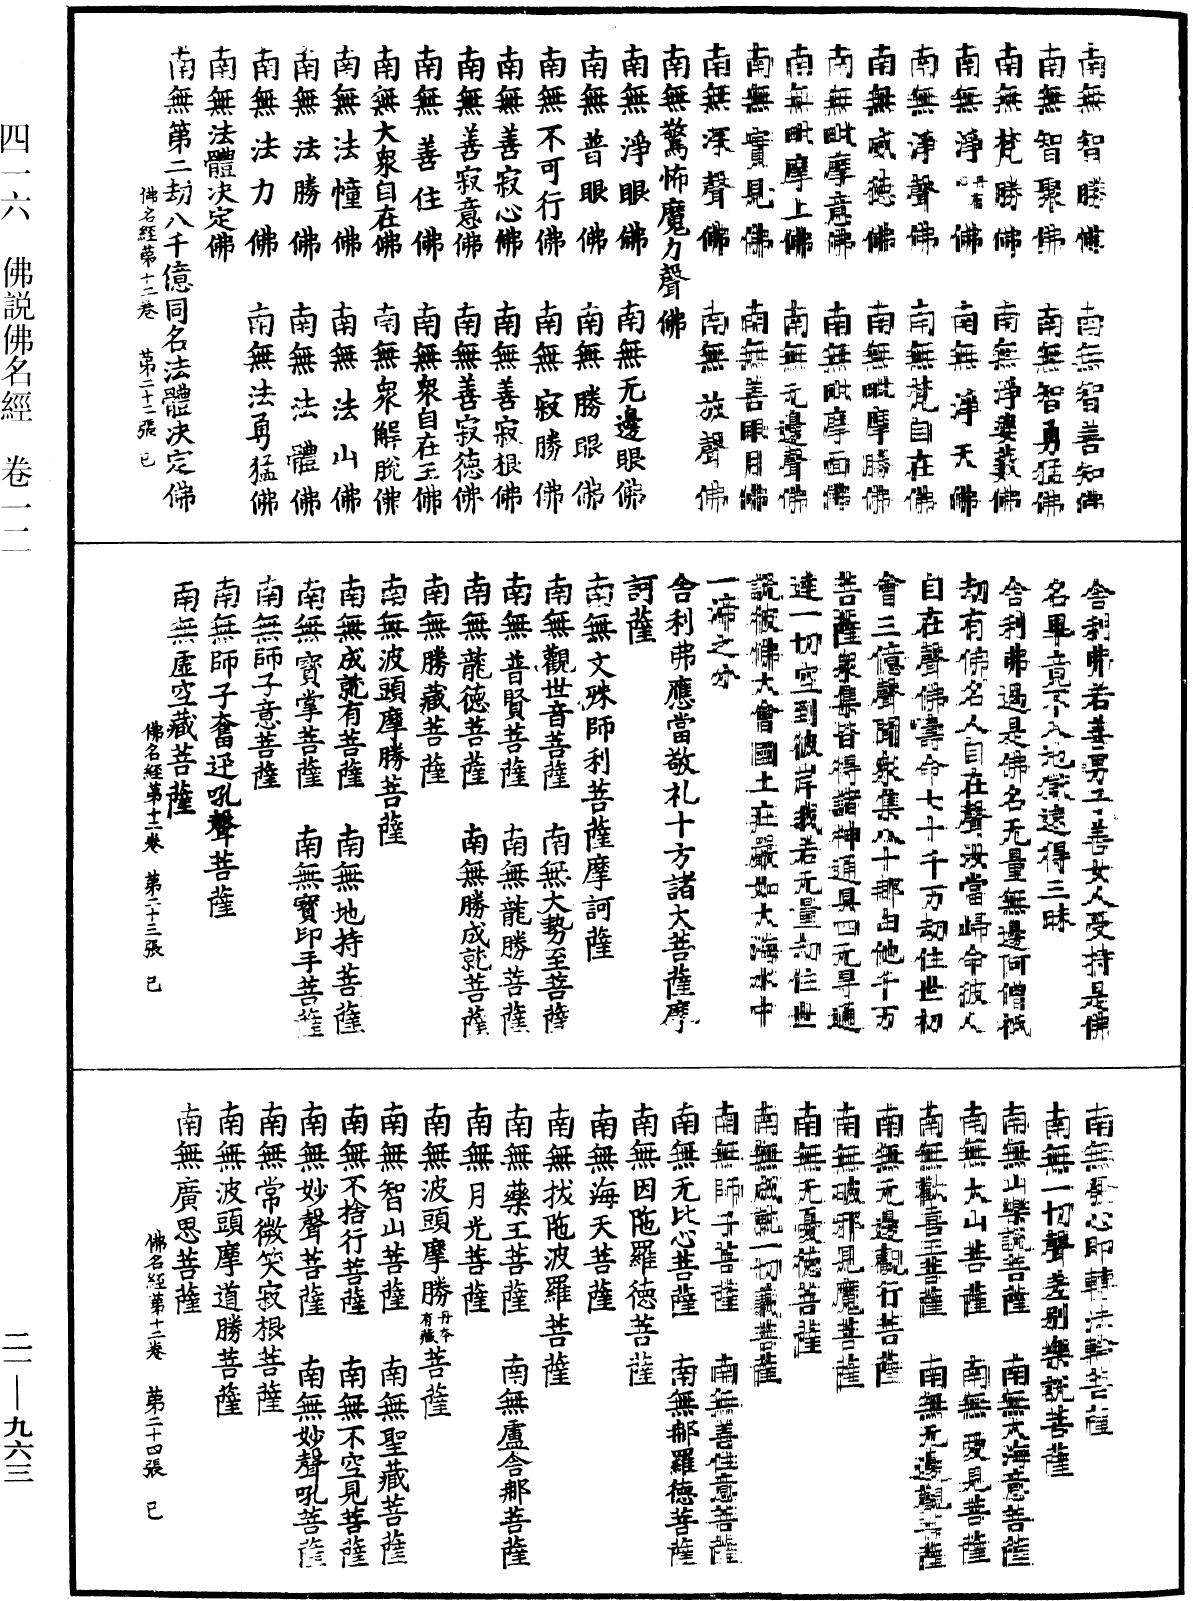 四一六　佛説佛名經　卷一二
二一—九六三
南無智勝佛　南無智善知佛
南無智聚佛　南無智勇猛佛
南無梵勝佛　南無淨婆藪佛
南無淨心佛　南無淨天佛
南無淨聲佛　南無梵自在佛
南無威德佛　南無毗摩勝佛
南無毗摩意佛　南無毗摩面佛
南無毗摩上佛　南無无邊聲佛
南無實見佛　南無善眼月佛
南無深聲佛　南無放聲佛
南無驚怖魔力聲佛
南無淨眼佛　南無无邊眼佛
南無普眼佛　南無勝眼佛
南無不可行佛　南無寂勝佛
南無善寂心佛　南無善寂根佛
南無善寂意佛　南無善寂德佛
南無善住佛　南無衆自在王佛
南無大衆自在佛　南無衆解脫佛
南無法幢佛　南無法山佛
南無法勝佛　南無法體佛
南無法力佛　南無法勇猛佛
南無法體決定佛
南無第二劫八千億同名法體決定佛
佛名經第十二卷　第二十二張　已
舍利弗若善男子善女人受持是佛
名畢竟不入地獄速得三昧
舍利弗過是佛名无量無邊阿僧祇
劫有佛名人自在聲汝當歸命彼人
自在聲佛壽命七十千万劫住世初
會三億聲聞衆集八十那由他千万
菩薩衆集皆得諸神通具四无㝵通
達一切空到彼岸我若无量劫住世
說彼佛大會國土莊嚴如大海水中
一渧之分
舍利弗應當敬礼十方諸大菩薩摩
訶薩
南無文殊師利菩薩摩訶薩
南無觀世音菩薩　南無大勢至菩薩
南無普賢菩薩　南無龍勝菩薩
南無龍德菩薩　南無勝成就菩薩
南無勝藏菩薩
南無波頭摩勝菩薩
南無成就有菩薩　南無地持菩薩
南無寶掌菩薩　南無寶印手菩薩
南無師子意菩薩
南無師子奮迅吼聲菩薩
南無虛空藏菩薩
佛名經第十二卷　第二十三張　已
南無發心即轉法輪菩薩
南無一切聲差別樂說菩薩
南無山樂說菩薩　南無大海意菩薩
南無大山菩薩　南無愛見菩薩
南無歡喜王菩薩　南無无邊觀菩薩
南無无邊觀行菩薩
南無破邪見魔菩薩
南無无憂德菩薩
南無成就一切義菩薩
南無師子菩薩　南無善住意菩薩
南無无比心菩薩　南無那羅德菩薩
南無因陁羅德菩薩
南無海天菩薩
南無拔陁波羅菩薩
南無藥王菩薩　南無盧舍那菩薩
南無月光菩薩
南無波頭摩勝丹本有藏菩薩
南無智山菩薩　南無聖藏菩薩
南無不捨行菩薩　南無不空見菩薩
南無妙聲菩薩　南無妙聲吼菩薩
南無常微笑寂根菩薩
南無波頭摩道勝菩薩
南無廣思菩薩
佛名經第十二卷　第二十四張　已